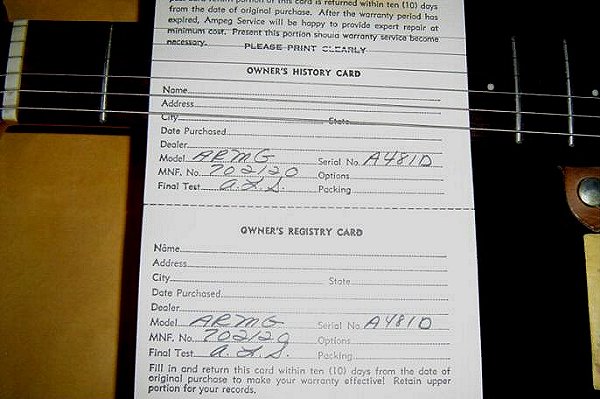 post card return portion of this card is returned within ten (10) days
from the date of original purchase. After the warranty period has
expired, Ampeg Service will be happy to provide expert repair at
minimum cost. Present this portion should warranty service become
necessary.
PLEASE PRINT CLEARLY
OWNER'S HISTORY CARD
Name
Address
City State
Date Purchased
Dealer
Model ARMG Serial No. A481D
MNF. No. 702120 Options
Final Test a.L.S. Packing
OWNER'S REGISTRY CARD
Name
Address
City State
Date Purchased
Dealer
Model ARMG Serial No. A481D
MNF. No. 702120 Options
Final Test a.L.S. Packing
Fill in and return this card within ten (10) days from the date of
original purchase to make your warranty effective! Retain upper
portion for your records.